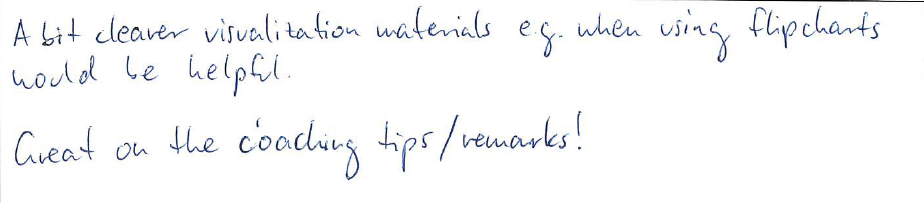 A bit clearer visualization materials e.g. when using flipcharts
would be helpful.
Great on the coaching tips/remarks!